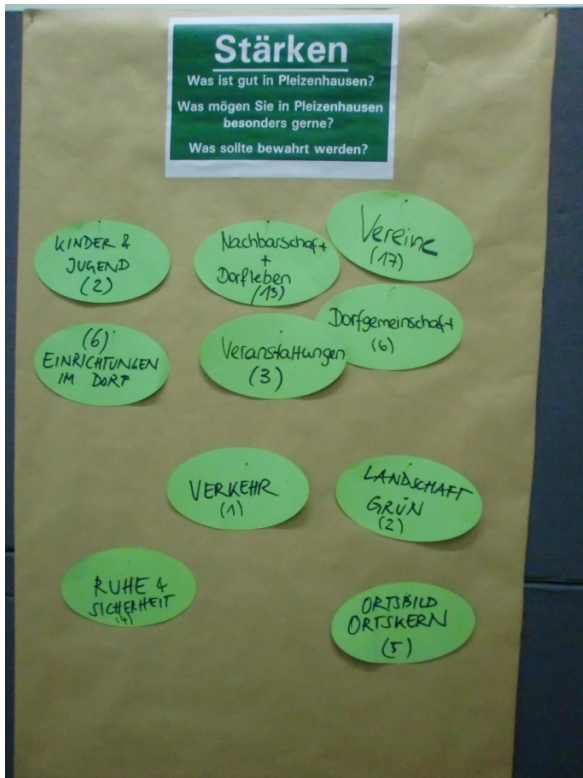 Stärken
Was ist gut in Pleizenhausen?
Was mögen Sie in Pleizenhausen
besonders gerne?
Was sollte bewahrt werden?
KINDER &
JUGEND
(2)
Nachbarschaft
+
Dorfleben
(13)
Vereine
(17)
(6)
EINRICHTUNGEN
IM DORF
Veranstaltungen
(3)
Dorfgemeinschaft
(6)
VERKEHR
(1)
LANDSCHAFT
GRÜN
(2)
RUHE &
SICHERHEIT
(4)
ORTSBILD
ORTSKERN
(5)